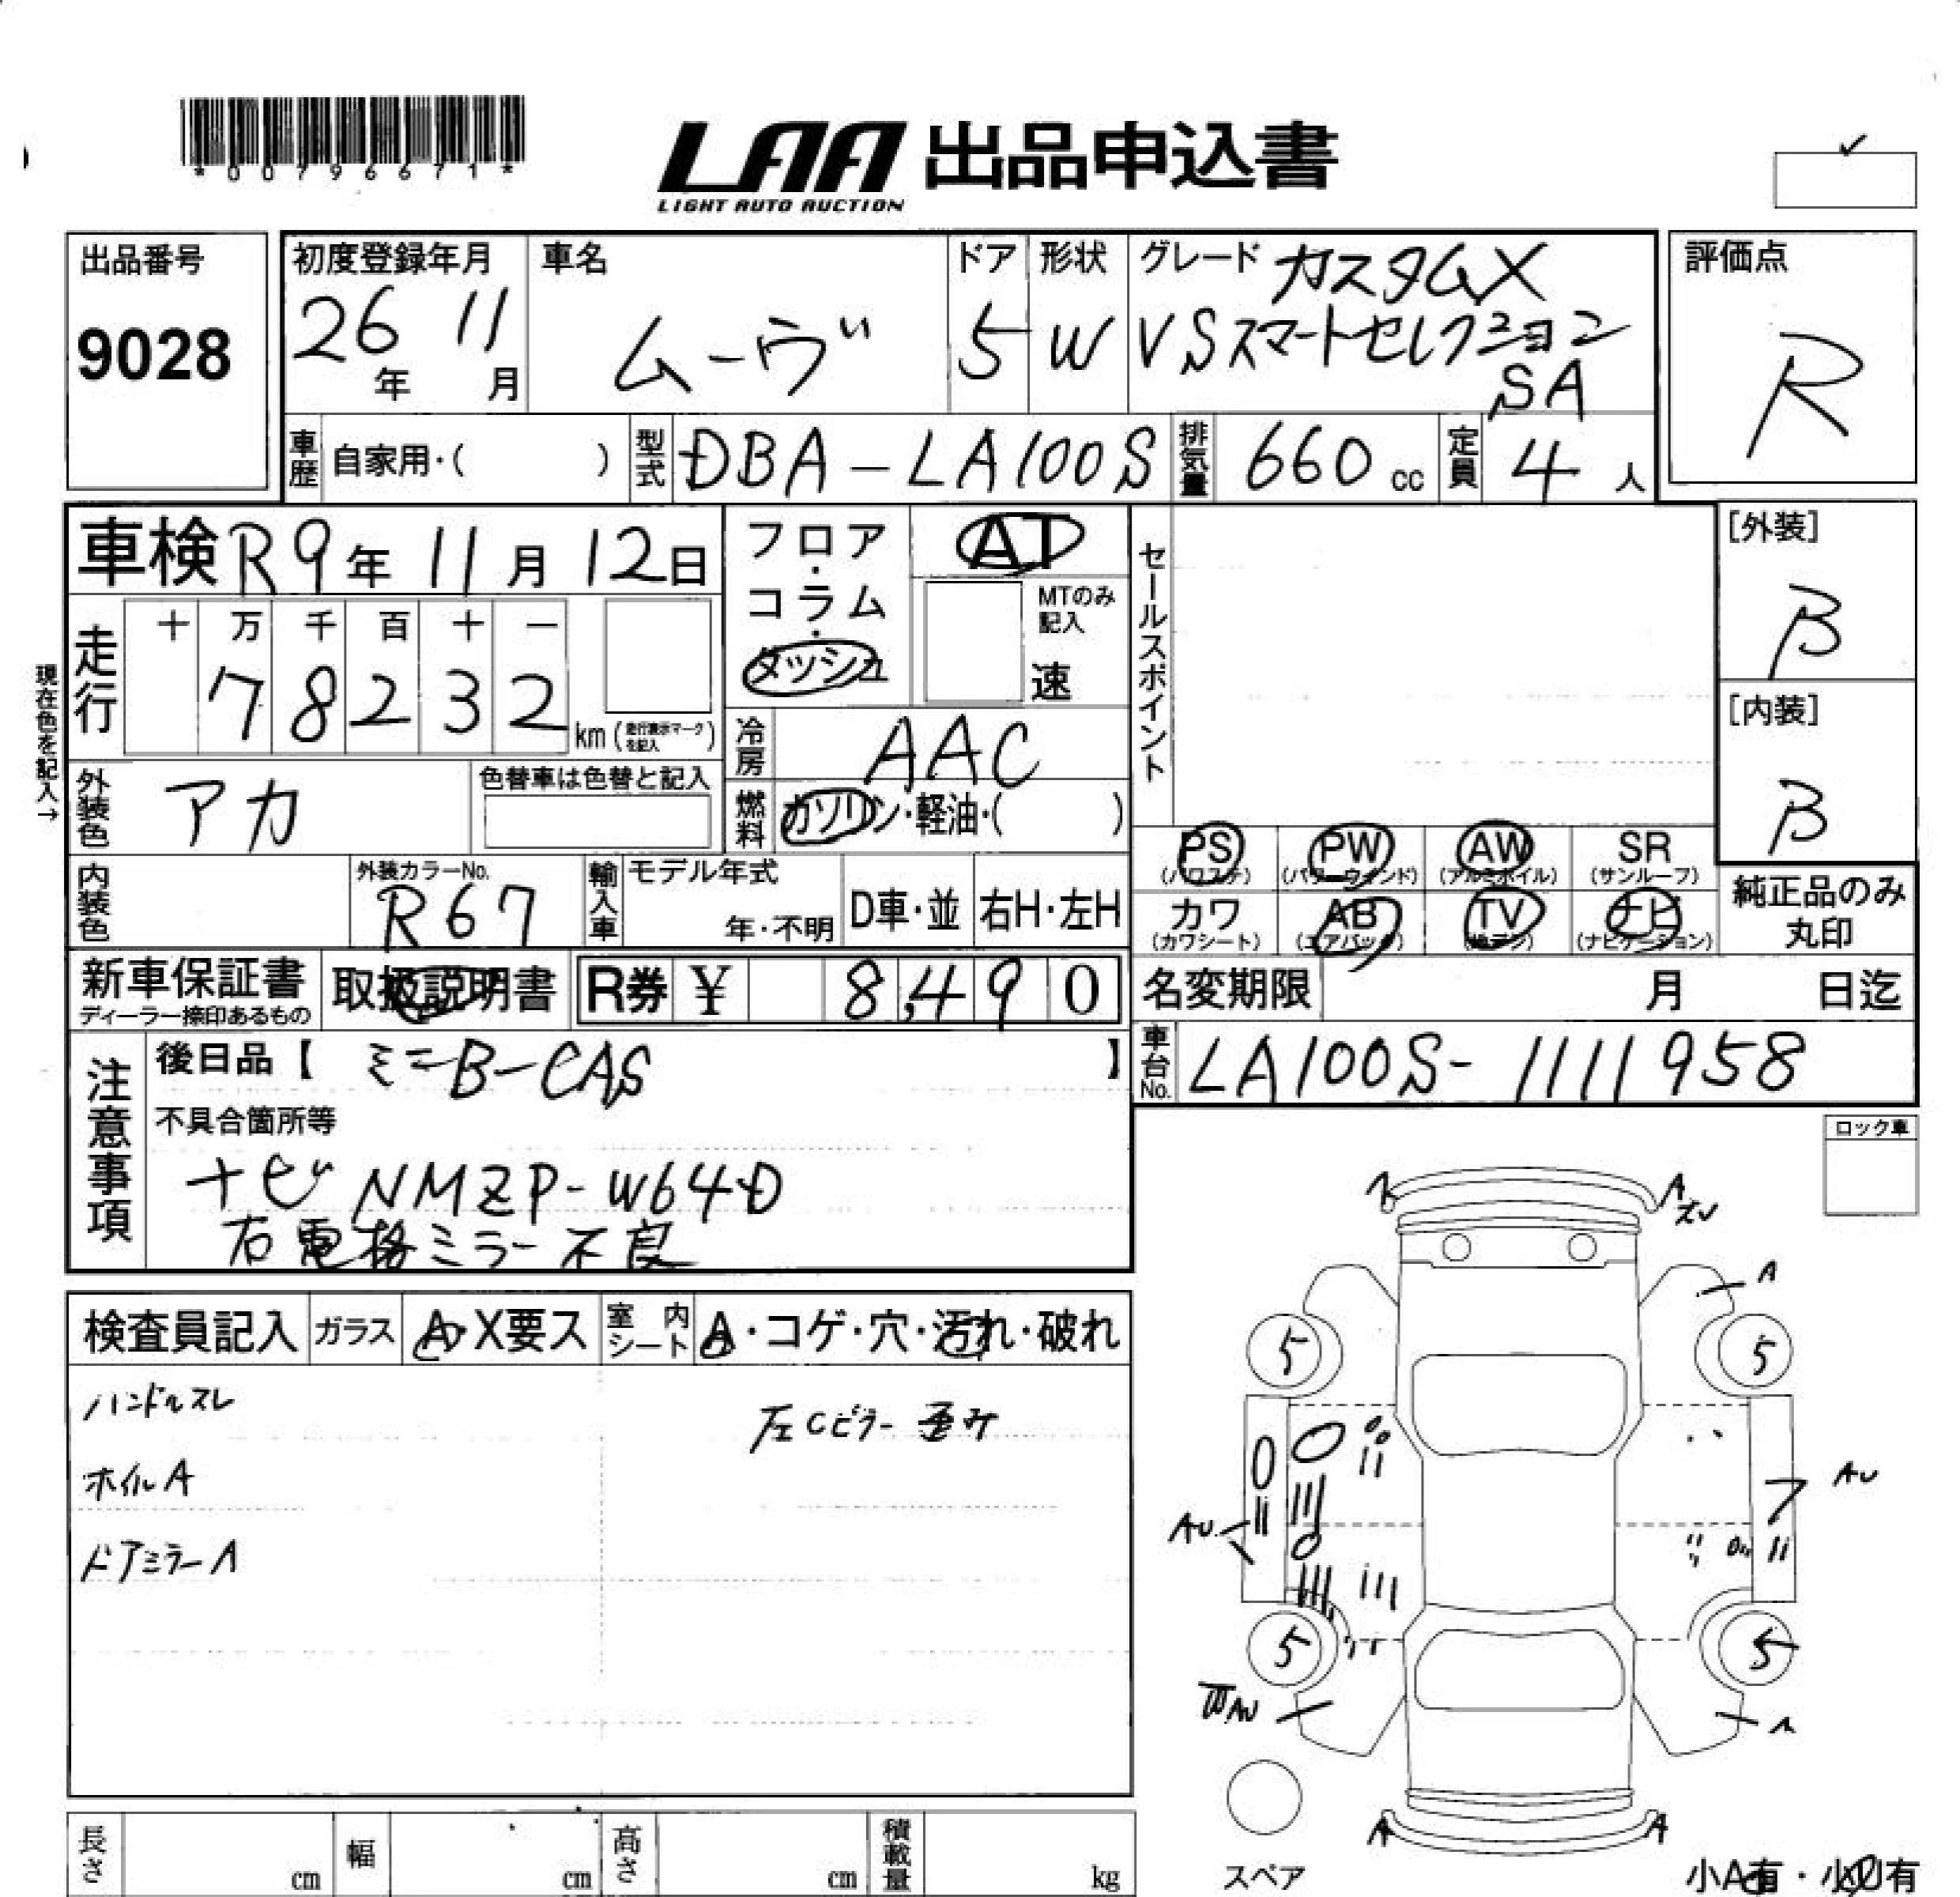 *00796671*
LAA 出品申込書
LIGHT AUTO AUCTION
出品番号
9028
初度登録年月
26年 11月
車名
ムーヴ
ドア
5
形状
W
グレード カスタムX
VSスマートセレクション
SA
評価点
R
車歴 自家用・( )
型式 DBA-LA100S
排気量 660 cc
定員 4 人
車検 R9年 11月 12日
フロア・コラム・ダッシュ
AT
MTのみ記入
速
セールスポイント
[外装]
B
[内装]
B
現在色を記入→
走行
十 万 千 百 十 一
78232
km (走行表示マークを記入)
冷房 AAC
外装色 アカ
色替車は色替と記入
燃料 ガソリン・軽油・( )
PS (パワステ)
PW (パワーウインド)
AW (アルミホイル)
SR (サンルーフ)
カワ (カワシート)
AB (エアバック)
TV (地デジ)
ナビ (ナビゲーション)
純正品のみ
丸印
内装色
外装カラーNo.
R67
輸入車
モデル年式
年・不明
D車・並
右H・左H
新車保証書
ディーラー捺印あるもの
取扱説明書
R券 ¥ 8,490
名変期限 月 日迄
車台No. LA100S-1111958
注意事項
後日品【 ミニB-CAS 】
不具合箇所等
ナビ NMZP-W64D
右電格ミラー不良
ロック車
検査員記入
ガラス A・X要ス
室内シート A・コゲ・穴・汚れ・破れ
ハンドルスレ
左Cピラー歪み
ホイルA
ドアミラーA
A A
A
5 5
AU
AU
5 5
A
A A
スペア
小A有・小U有
長さ cm
幅 cm
高さ cm
積載量 kg